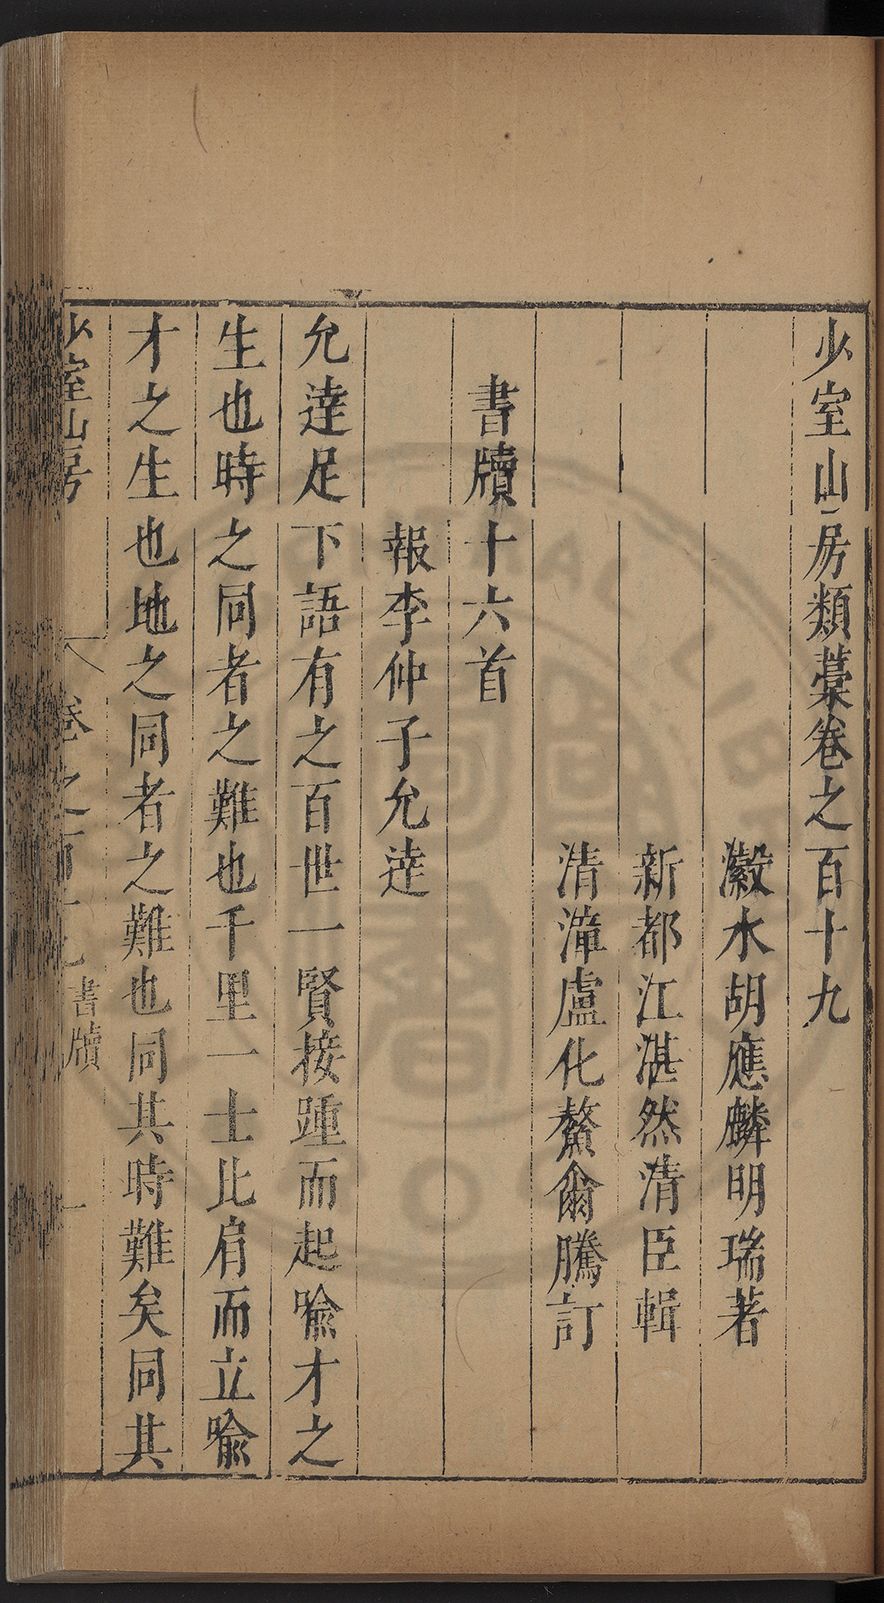 少室山房類藁卷之百十九
瀫水胡應麟明瑞著
新都江湛然清臣輯
清漳盧化鰲爾騰訂
書牘十六首
報李仲子允達
允達足下語有之百世一賢接踵而起喻才之
生也時之同者之難也千里一士比肩而立喻
才之生也地之同者之難也同其時難矣同其
少室山房
卷之百十九
書牘
一